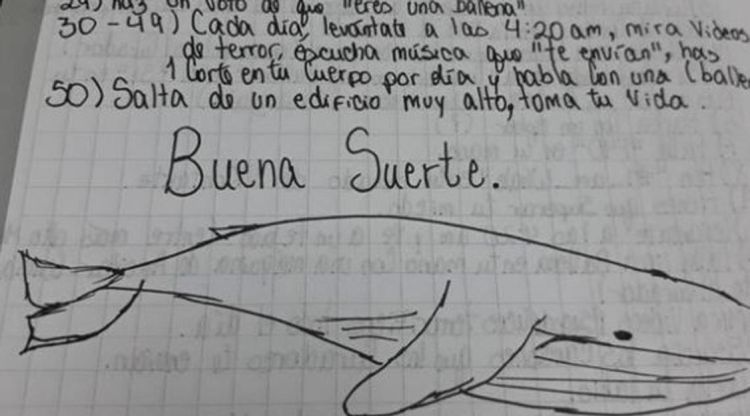 haz un voto de que "eres una ballena"
30 - 49) Cada día, levántate a las 4:20 am, mira videos
de terror, escucha música que "te envían", has
1 Corte en tu Cuerpo por día y habla con una
50) Salta de un edificio muy alto, toma tu vida.
Buena Suerte.